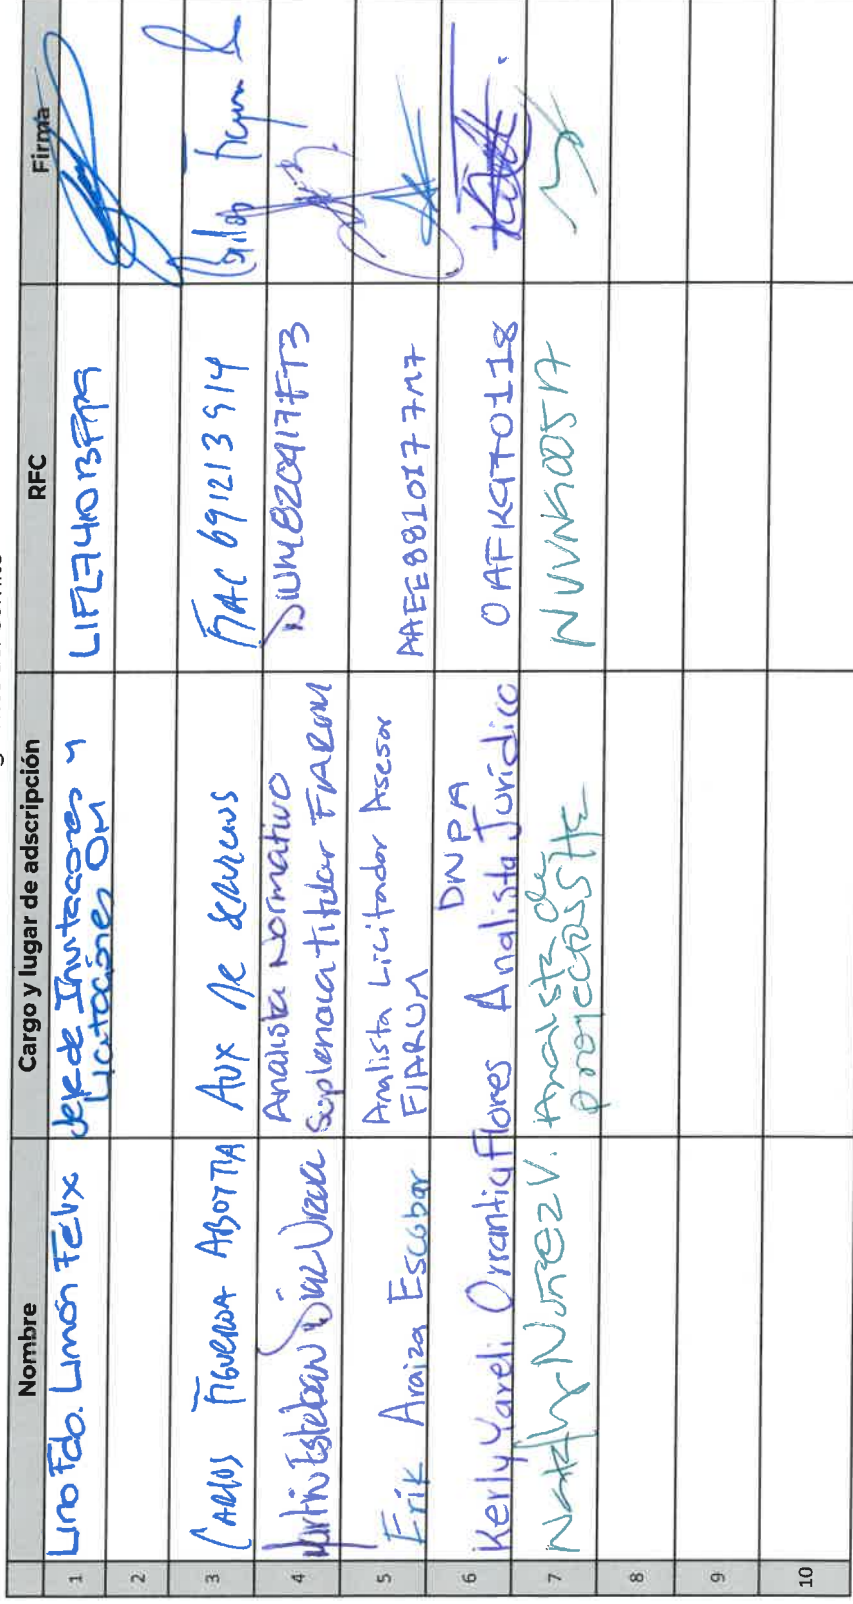 Nombre Cargo y lugar de adscripción RFC Firma
1 Lino Fdo. Limón Félix Jefe de Invitaciones y
Licitaciones OM
2
3 CARLOS FIGUEROA ABOYTIA AUX DE SERVICIOS FIAC691213914
4 Martin Esteban Díaz Urzua Analista Normativo
Suplencia titular FIARUM DIUM820917FT3
5 Erik Araiza Escobar Analista Licitador Asesor
FIARUM AAEE8810177M7
6 Kerly Yareli Orrantia Flores DNPA
Analista Jurídico OAFK970118
7 Nathaly Nuñez V. Analista de
proyectos
8
9
10